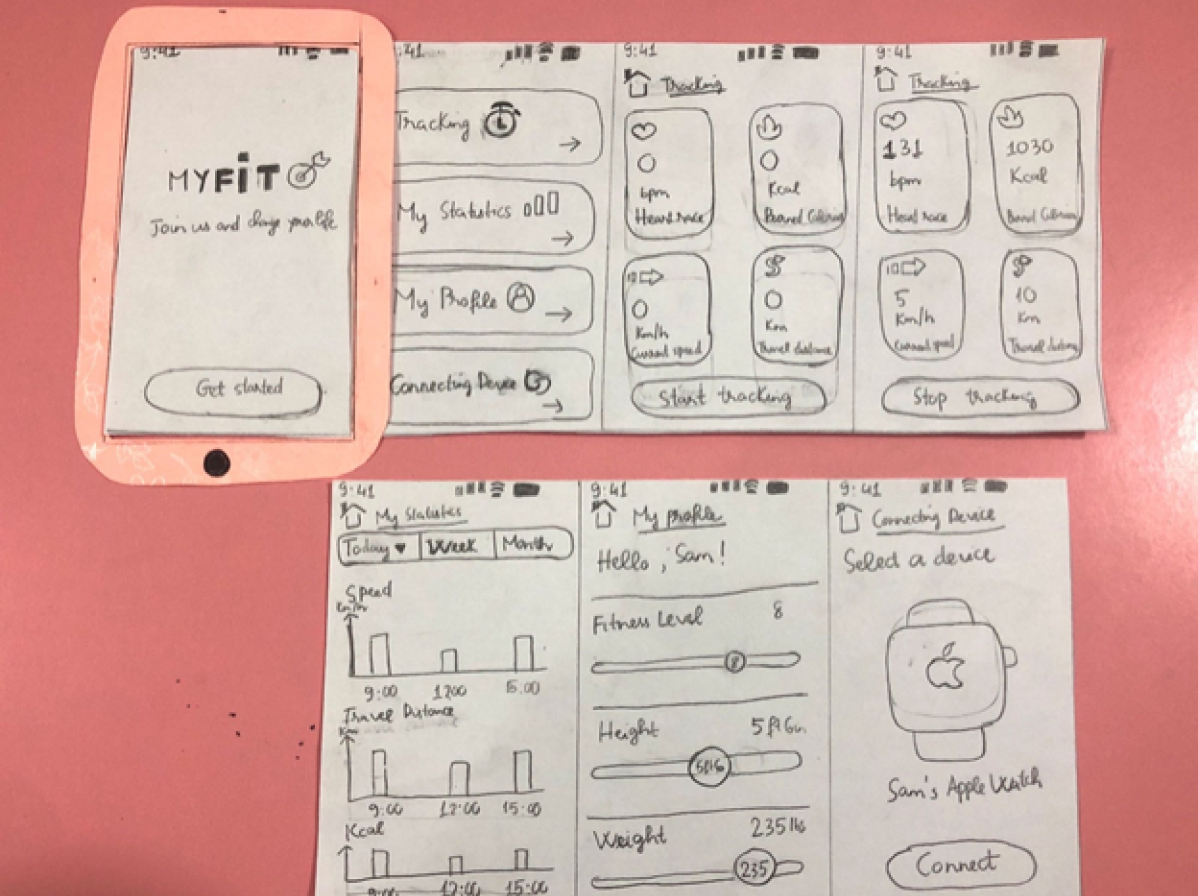 9:41
MYFiT
Join us and change your life
Get started
9:41
Tracking
My Statistics
My Profile
Connecting Device
9:41
Tracking
0
bpm
0
Kcal
0
Km/h
Current speed
0
Km
Travel distance
Start tracking
9:41
Tracking
131
bpm
1030
Kcal
5
Km/h
Current speed
10
Km
Stop tracking
9:41
My Statistics
Today Week Month
Speed
Km/h
9:00 1200 15:00
Travel Distance
Km
9:00 12:00 15:00
Kcal
9:00 12:00 15:00
9:41
My profile
Hello, Sam!
Fitness Level 8
8
Height 5ft6in
5ft6
Weight 235 lbs
235
9:41
Connecting Device
Select a device
Sam's Apple Watch
Connect